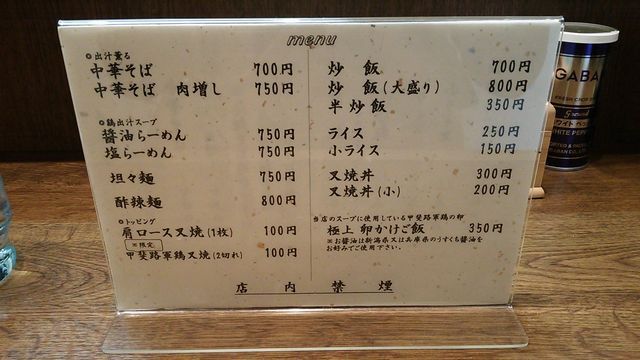 menu
◎出汁薫る
中華そば 700円
中華そば 肉増し 750円
◎鶏出汁スープ
醤油らーめん 750円
塩らーめん 750円
坦々麺 750円
酢辣麺 800円
◎トッピング
肩ロース叉焼(1枚) 100円
※限定
甲斐路軍鶏叉焼(2切れ) 100円
炒飯 700円
炒飯(大盛り) 800円
半炒飯 350円
ライス 250円
小ライス 150円
叉焼丼 300円
叉焼丼(小) 200円
当店のスープに使用している甲斐路軍鶏の卵
極上 卵かけご飯 350円
※お醤油は新潟県又は兵庫県のうすくち醤油を
お好みでご使用下さい。
店内禁煙
GABA
WHITE PEPP